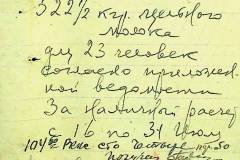 322 1/2 кгр. цельного
молока
для 23 человек
согласно приложен-
ной ведомости
За наличный расчет
с 16 по 31 Июля
104 руб